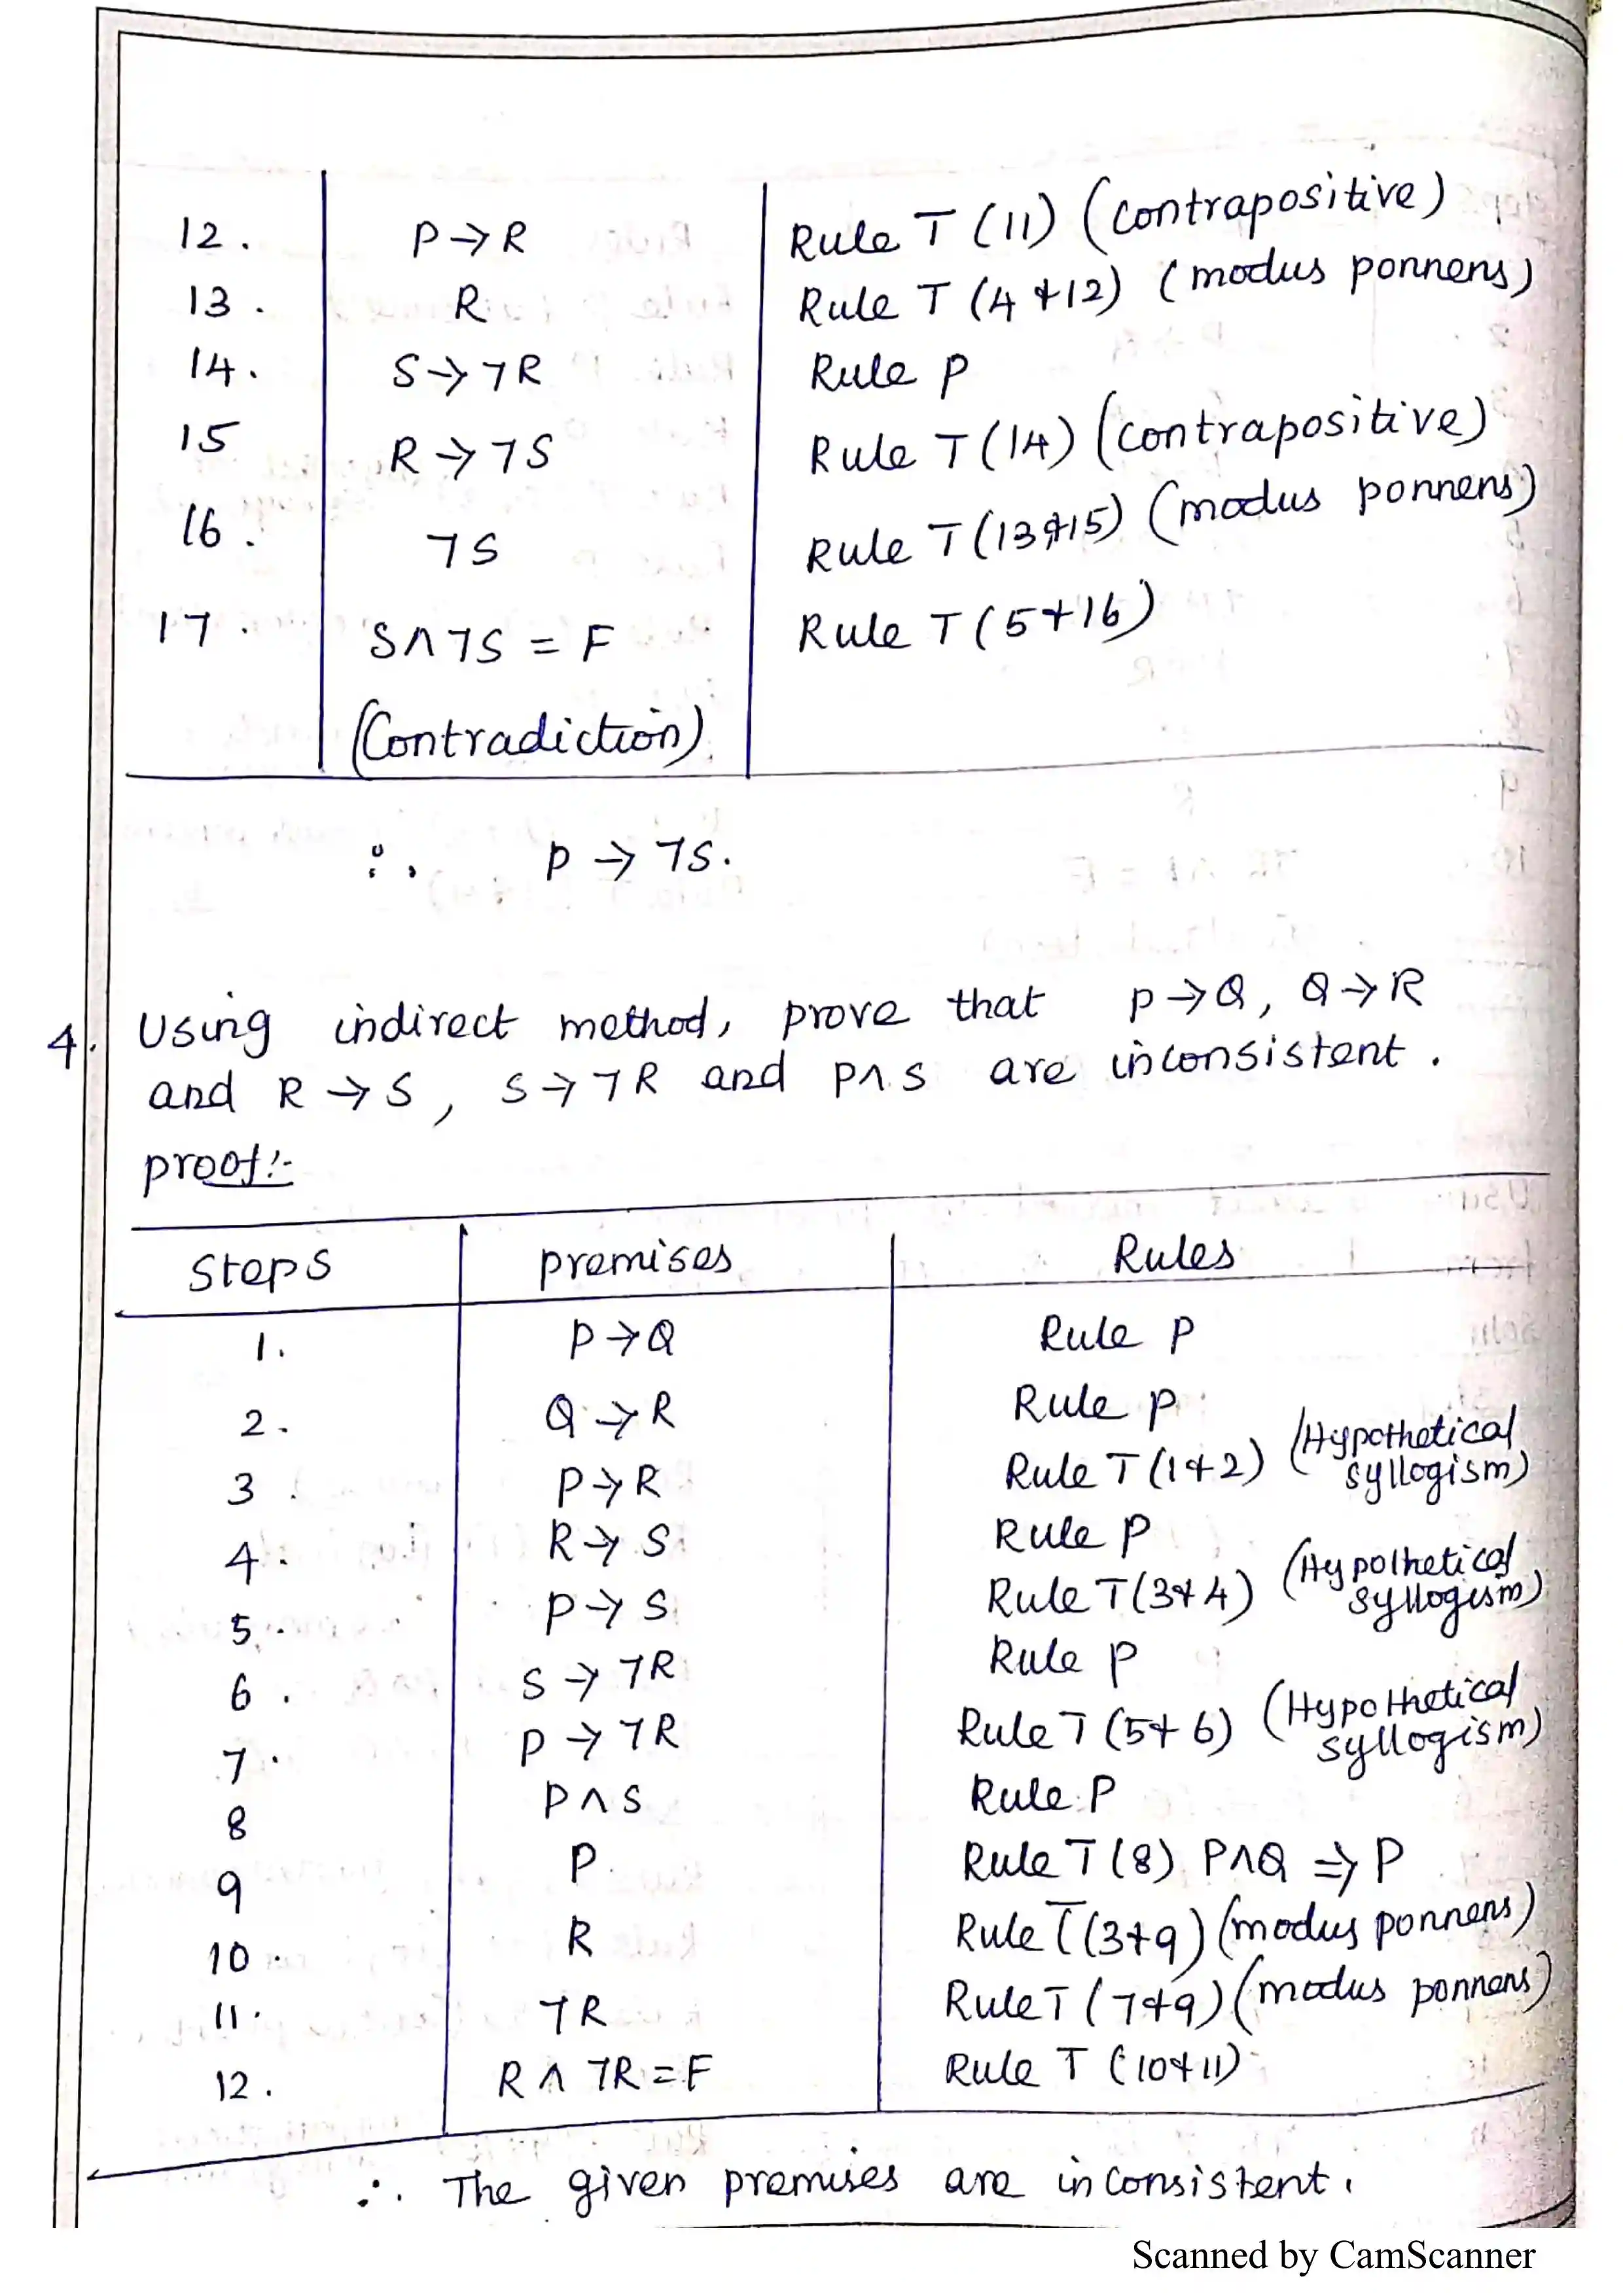 12. P→R Rule T (11) (contrapositive)
13. R Rule T (4 & 12) (modus ponnens)
14. S→¬R Rule P
15 R→¬S Rule T (14) (contrapositive)
16. ¬S Rule T (13 & 15) (modus ponnens)
17. S∧¬S = F Rule T (5 & 16)
(Contradiction)
∴ P→¬S.
4. Using indirect method, prove that P→Q, Q→R
and R→S, S→¬R and P∧S are inconsistent.
proof:-
Steps premises Rules
1. P→Q Rule P
2. Q→R Rule P
3. P→R Rule T (1 & 2) (Hypothetical syllogism)
4. R→S Rule P
5. P→S Rule T (3 & 4) (Hypothetical syllogism)
6. S→¬R Rule P
7. P→¬R Rule T (5 & 6) (Hypothetical syllogism)
8 P∧S Rule P
9 P Rule T (8) P∧Q ⇒ P
10. R Rule T (3 & 9) (modus ponnens)
11. ¬R Rule T (7 & 9) (modus ponnens)
12. R∧¬R = F Rule T (10 & 11)
∴ The given premises are inconsistent.
Scanned by CamScanner